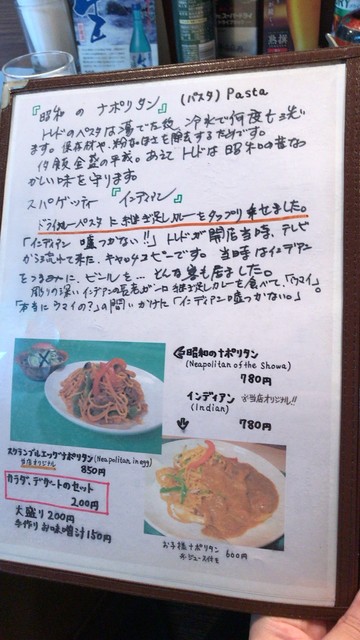 『昭和 の ナポリタン』 (パスタ) Pasta
トルドのパスタは湯でた後、冷水で何度も洗い
ます。保存材や、粉っぽさを除去するためです。
伊飯全盛の平成。あえてトルドは昭和の昔な
かしい味を守ります。
スパゲッティー 『インディアン』
ドライカレーパスタに継ぎ足しカレーをタップリ乗せました。
「インディアン 嘘つかない!!」 トルドが開店当時、テレビ
から流れて来た、キャッチコピーです。当時はインデアン
をつまみに、ビールを… どんな客も居ました。
彫りの深いインデアンの長老が一口継ぎ足しカレーを食べて、「ウマイ」。
「本当にウマイの?」の問いかけに「インディアン嘘つかない。」
昭和のナポリタン
(Neapolitan of the Showa)
780円
インディアン ※当店オリジナル!!
(Indian)
780円
スクランブルエッグナポリタン (Neapolitan in egg)
当店オリジナル
850円
サラダ、デザートのセット
200円
大盛り 200円
手作り お味噌汁 150円
お子様ナポリタン 600円
※ジュース付き